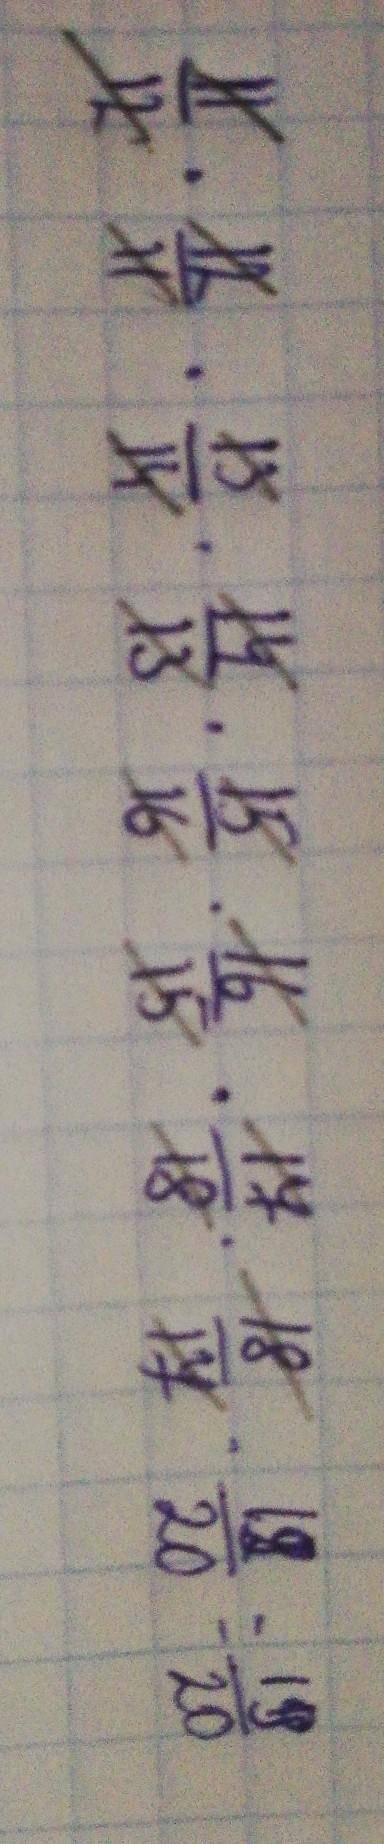 11/12 · 12/11 · 13/14 · 14/13 · 15/16 · 16/15 · 17/18 · 18/17 · 19/20 = 19/20